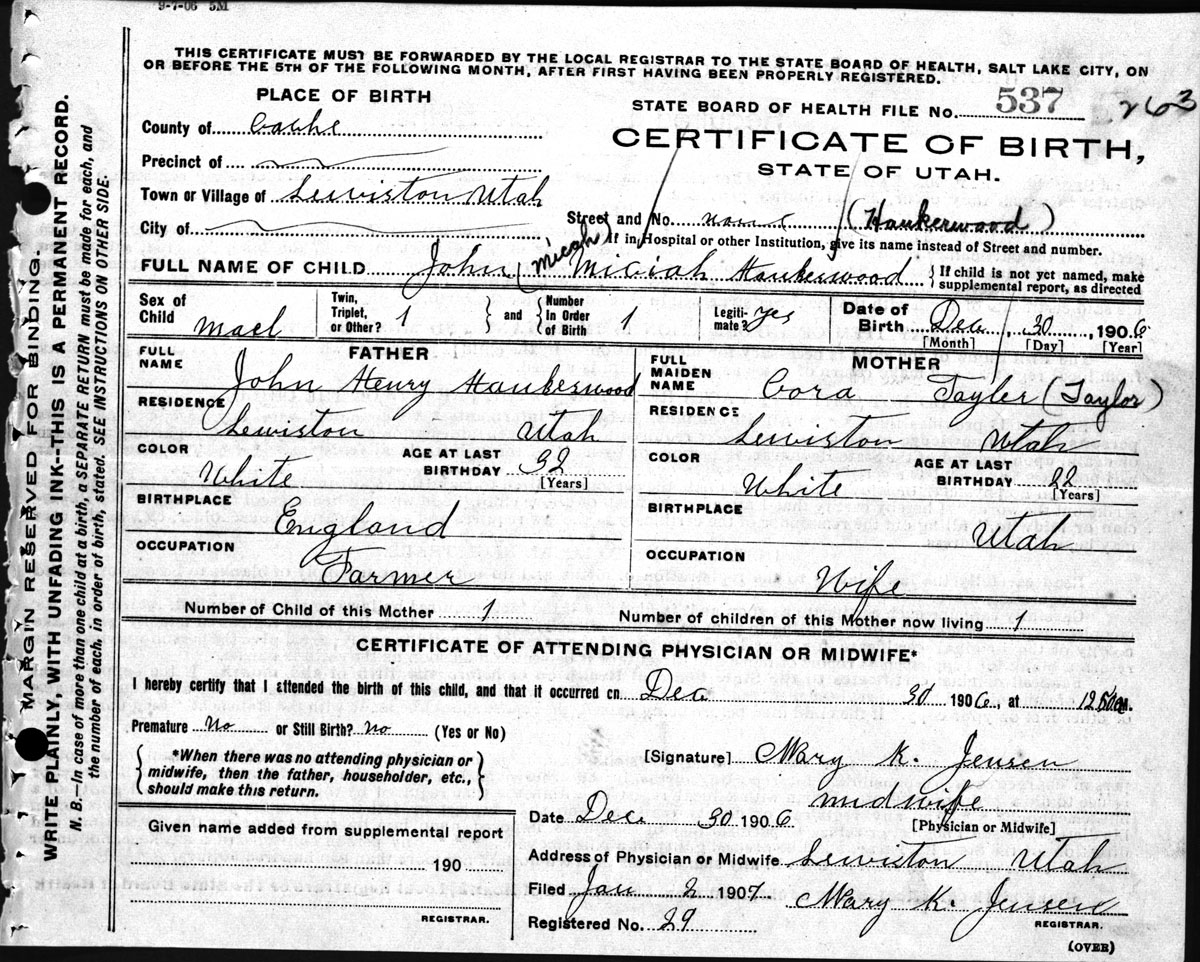 9-7-06 5M
THIS CERTIFICATE MUST BE FORWARDED BY THE LOCAL REGISTRAR TO THE STATE BOARD OF HEALTH, SALT LAKE CITY, ON
OR BEFORE THE 5TH OF THE FOLLOWING MONTH, AFTER FIRST HAVING BEEN PROPERLY REGISTERED.
MARGIN RESERVED FOR BINDING.
WRITE PLAINLY, WITH UNFADING INK--THIS IS A PERMANENT RECORD.
N. B.—In case of more than one child at a birth, a SEPARATE RETURN must be made for each, and
the number of each, in order of birth, stated. SEE INSTRUCTIONS ON OTHER SIDE.
PLACE OF BIRTH
STATE BOARD OF HEALTH FILE No. 537 263
County of Cache
CERTIFICATE OF BIRTH,
STATE OF UTAH.
Precinct of
Town or Village of Lewiston Utah
City of
Street and No. none (Haukerwood)
If in Hospital or other Institution, give its name instead of Street and number.
FULL NAME OF CHILD John (Micah) Miciah Haukerwood
If child is not yet named, make
supplemental report, as directed
Sex of Child mael
Twin, Triplet, or Other? 1 and Number In Order of Birth 1
Legitimate? yes
Date of Birth Dec. 30, 1906
[Month] [Day] [Year]
FATHER
FULL NAME John Henry Haukerwood
RESIDENCE Lewiston Utah
COLOR White AGE AT LAST BIRTHDAY 32
[Years]
BIRTHPLACE England
OCCUPATION Farmer
MOTHER
FULL MAIDEN NAME Cora Tayler (Taylor)
RESIDENCE Lewiston Utah
COLOR White AGE AT LAST BIRTHDAY 22
[Years]
BIRTHPLACE Utah
OCCUPATION Wife
Number of Child of this Mother 1 Number of children of this Mother now living 1
CERTIFICATE OF ATTENDING PHYSICIAN OR MIDWIFE*
I hereby certify that I attended the birth of this child, and that it occurred on Dec 30 1906, at
Premature No or Still Birth? No (Yes or No)
*When there was no attending physician or
midwife, then the father, householder, etc.,
should make this return.
[Signature] Mary K. Jensen
midwife
[Physician or Midwife]
Date Dec. 30 1906
Given name added from supplemental report
190
REGISTRAR.
Address of Physician or Midwife Lewiston Utah
Filed Jan 2 1907 Mary K. Jensen
REGISTRAR.
Registered No. 29
(OVER)